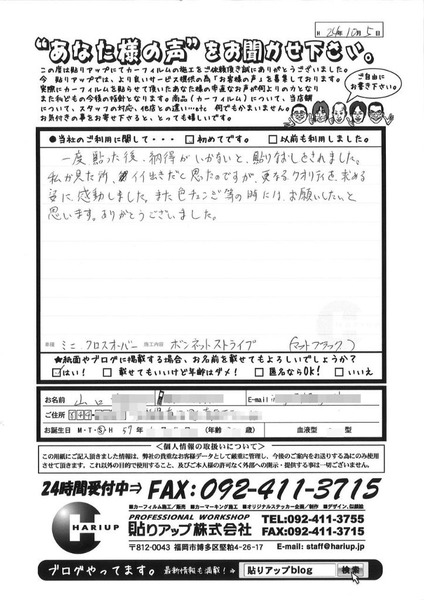 24年10月5日
“あなた様の声”をお聞かせ下さい。
この度は貼りアップにてカーフィルムの施工をご依頼頂き誠にありがとうございました。
今、貼りアップでは、より良いサービス提供の為「お客様の声」を募集しております。
実際にカーフィルムを貼らせて頂いたあなた様の率直なお声が何よりの力となり
また私どもの今後の指針となります。商品(カーフィルム)について、当店頭
について、スタッフの対応、他店との違い…etc 何でもかまいません。
お気付きの事をお寄せ下さると、とっても嬉しいです。
ご自由に
お書き下さい。
●当社のご利用に関して・・・ □初めてです。 □以前も利用しました。
一度貼った後、納得がいかないと、貼りなおしをされました。
私が見た所、イイ出きだと思ったのですが、更なるクオリティを求める
姿に、感動しました。また色チェンジ等の時には、お願いしたいと
思います。ありがとうございました。
車種 ミニ クロスオーバー 施工内容 ボンネットストライプ (マットブラック)
★紙面やブログに掲載する場合、お名前を載せてもよろしいでしょうか?
□はい! □載せてもいいけど年齢はダメ! □匿名ならOK! □いいえ
お名前 山口 E-mail
ご住所
お誕生日 M・T・S・H 57年 月 日 血液型 型
<個人情報の取扱いについて>
この用紙にご記入頂きました情報は、弊社の貴重なお客様データとして厳重に管理し、今後のご案内をお送りする為にのみ使用
させて頂きます。これ以外の目的で使用すること、及びご本人様の許可なく外部への開示・提供する事は一切ございません。
24時間受付中⇒ FAX:092-411-3715
■カーフィルム施工/販売 ■カーマーキング施工 ■オリジナルステッカー企画/制作 ■デザイン、似顔絵
PROFESSIONAL WORKSHOP
貼りアップ株式会社
TEL:092-411-3755
FAX:092-411-3715
H
HARIUP
〒812-0043 福岡市博多区堅粕4-26-17 E-mail: staff@hariup.jp
ブログやってます。 最新情報も満載!⇒ 貼りアップblog 検索